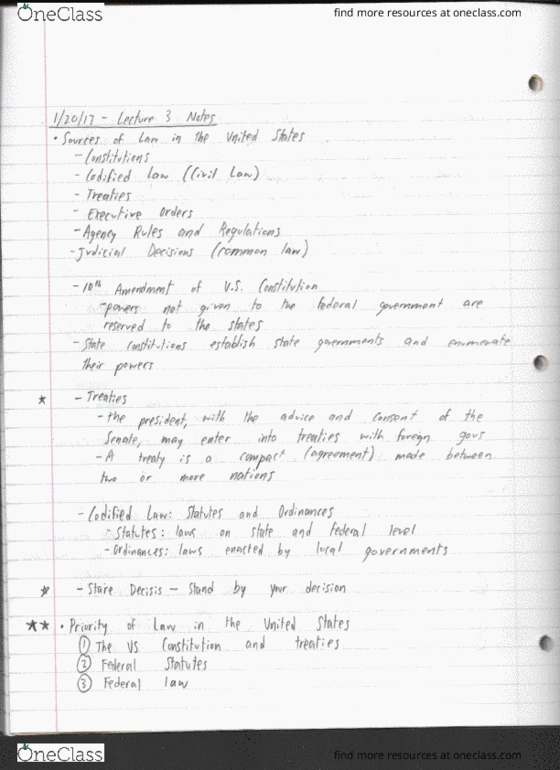 OneClass
find more resources at oneclass.com
1/20/17 - Lecture 3 Notes
• Sources of Law in the United States
- Constitutions
- Codified law (Civil Law)
- Treaties
- Executive Orders
- Agency Rules and Regulations
- Judicial Decisions (common law)
- 10th Amendment of U.S. Constitution
- powers not given to the federal government are
reserved to the states
- State constitutions establish state governments and enumerate
their powers
★ - Treaties
- the president, with the advice and consent of the
Senate, may enter into treaties with foreign govs
- A treaty is a compact (agreement) made between
two or more nations
- Codified Law: Statutes and Ordinances
- Statutes: laws on state and federal level
- Ordinances: laws enacted by local governments
★ - Stare Decisis - Stand by your decision
★★ • Priority of Law in the United States
① The US Constitution and treaties
② Federal Statutes
③ Federal law
OneClass
find more resources at oneclass.com